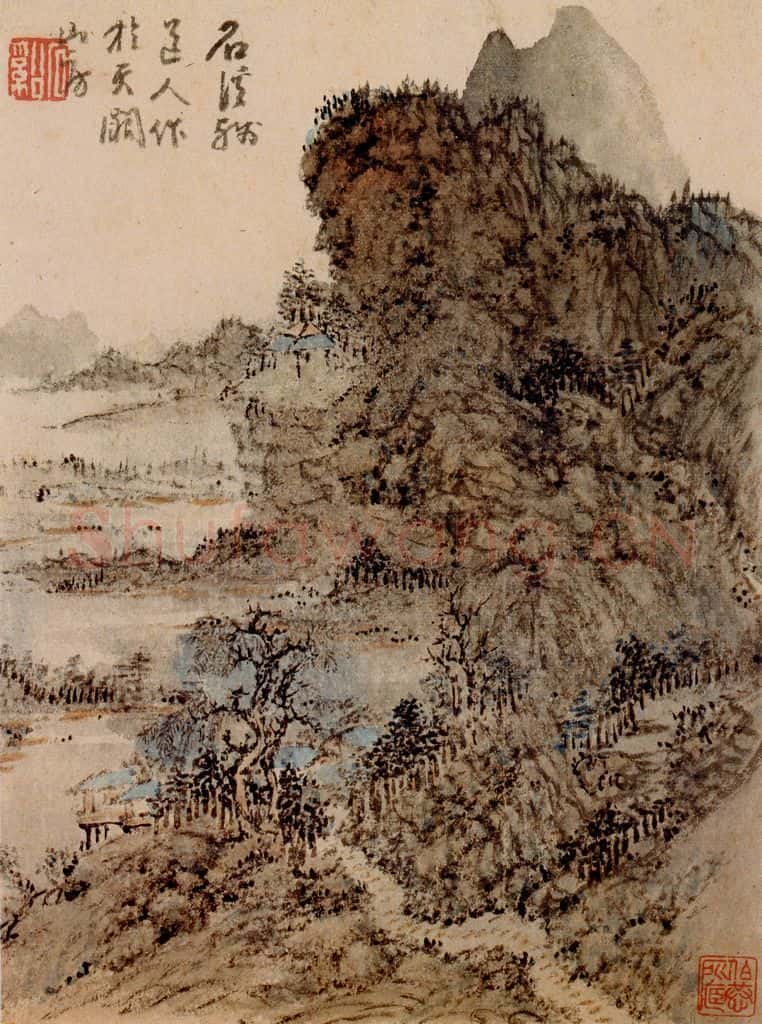 石溪殘
道人作
於天闕
山房
Shufawang.CN